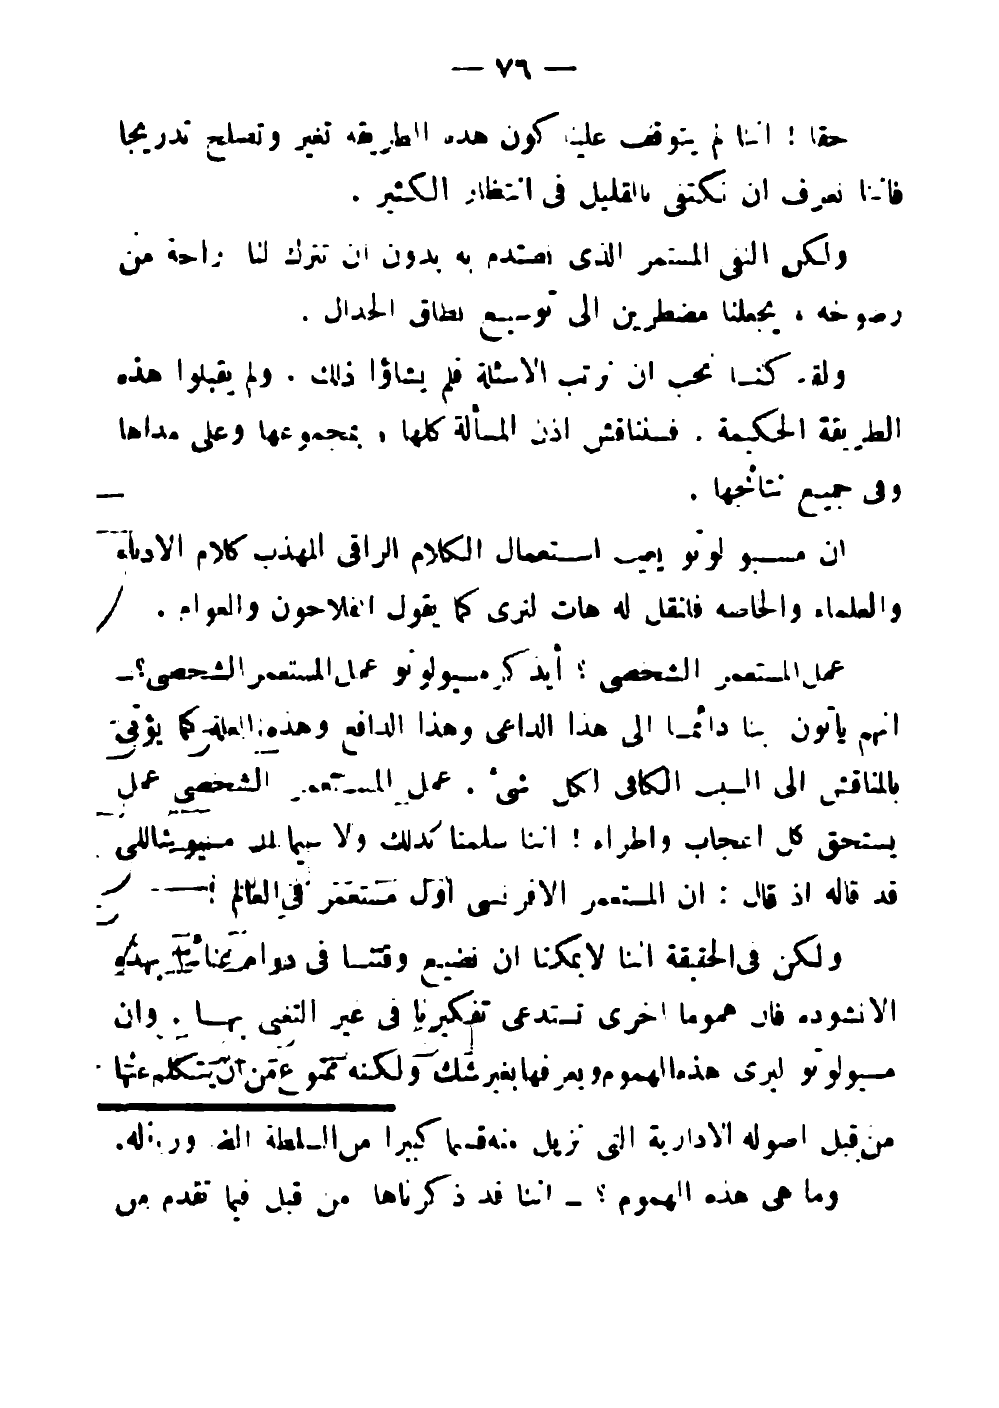 — ٧٦ —
حقا ! اننا لم يتوقف علينا كون هذه الطريقه تغير وتصلح تدريجا
فاننا نعرف ان نكتفى بالقليل فى انتظار الكثير .
ولكن النفى المستمر الذى نصتدم به بدون ان تترك لنا راحة من
رضوخه ، يجعلنا مضطرين الى توسيع نطاق الجدال .
ولقد كنا نحب ان نرتب الاسئلة فلم يشاؤا ذلك . ولم يقبلوا هذه
الطريقة الحكيمة . فسنناقش اذن المسألة كلها ، بمجموعها وعلى مداها
وفى جميع نتائجها .
ان مسيو لوتو يعيب استعمال الكلام الراقى المهذب كلام الادباء
والعلماء والخاصه فلنقل له هات لنرى كما يقول الفلاحون والعوام .
عمل المستعمر الشخصى ؟ أيذكر مسيولوتو عمل المستعمر الشخصى ؟ ـ
انهم يأتون بنا دائما الى هذا الداعى وهذا الدافع وهذه العلة كما يؤتى
بالمناقش الى السبب الكافى لكل شىء . عمل المستعمر الشخصى عمل
يستحق كل اعجاب واطراء ! اننا سلمنا كذلك ولا سيما بعد مسيو شاللى
قد قاله اذ قال : ان المستعمر الافرنسى اول مستعمر فى العالم !
ولكن فى الحقيقة اننا لا يمكننا ان نضيع وقتنا فى دوام بهذه
الانشوده فان هموما اخرى تستدعى تفكيرنا فى غير التغنى بها . وان
مسيولوتو ليرى هذه الهموم ويعرفها بغير شك ولكنه ممنوع من ان يتكلم عنها
من قبل اصوله الادارية التى تزيل قسما كبيرا من السلطة له .
وما هى هذه الهموم ؟ ـ اننا قد ذكرناها من قبل فيما تقدم من